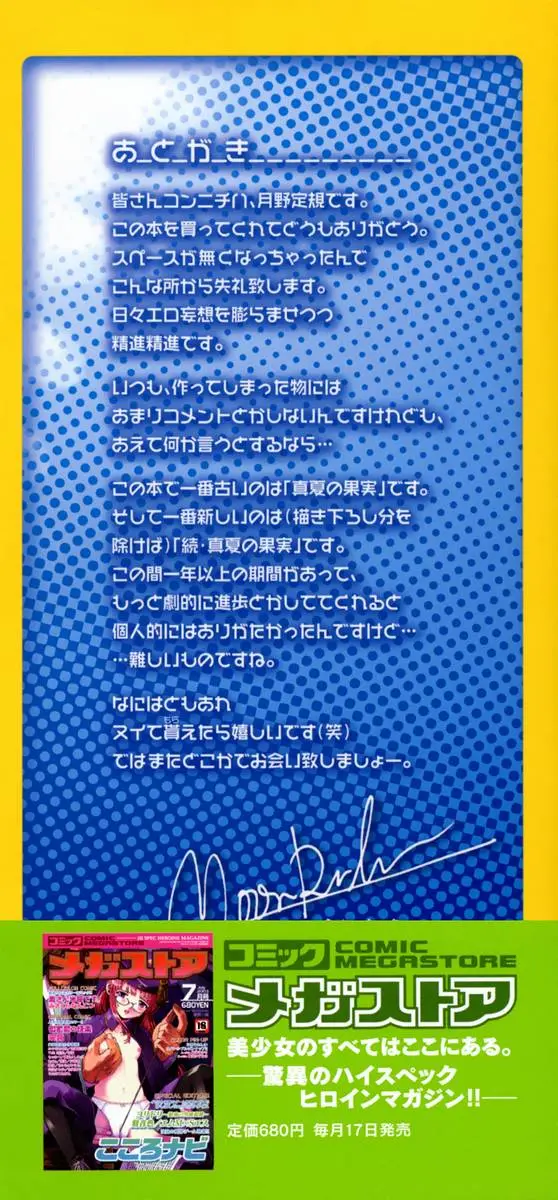 あ_と_が_き_________
皆さんコンニチハ、月野定規です。
この本を買ってくれてどうもありがとう。
スペースが無くなっちゃったんで
こんな所から失礼致します。
日々エロ妄想を膨らませつつ
精進精進です。
いつも、作ってしまった物には
あまりコメントとかしないんですけれども、
あえて何か言うとするなら…
この本で一番古いのは「真夏の果実」です。
そして一番新しいのは(描き下ろし分を
除けば)「続・真夏の果実」です。
この間一年以上の期間があって、
もっと劇的に進歩とかしててくれると
個人的にはありがたかったんですけど…
…難しいものですね。
なにはともあれ
ヌイて貰えたら嬉しいです(笑)
もら
ではまたどこかでお会い致しましょー。
コミック
COMIC
MEGASTORE
メガストア
美少女のすべてはここにある。
―驚異のハイスペック
ヒロインマガジン!!―
定価680円 毎月17日発売
HI SPEC HEROINE MAGAZINE
コミック
COMIC
MEGASTORE
メガストア
7
月号
680YEN
18
COLOR PIN-UP
SPECIAL EDITION
こころナビ